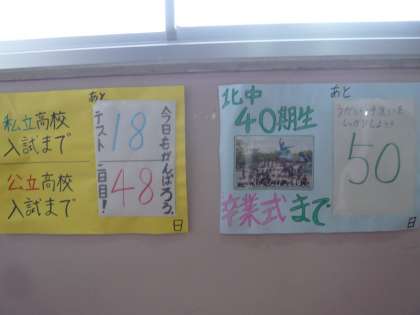 あと
私立高校
入試まで
18
公立高校
入試まで
48
今日もがんばろう。
テスト二日目!
日
北中
40期生
あと
うがい・手洗いを
しっかりしよう!
50
卒業式まで
日